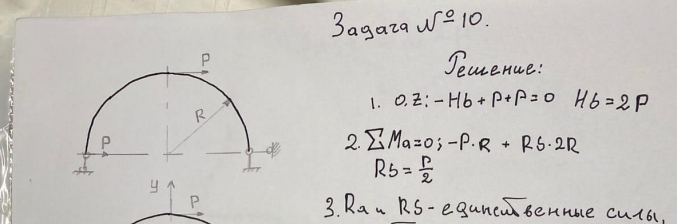 Задача № 10.
Решение:
P
R
1. O.Z: -Hb + P + P = 0 Hb = 2P
P
2. ∑Ma=0; -P·R + Rb·2R
Rb = P/2
y
P
3. Ra и Rb - единственные силы,